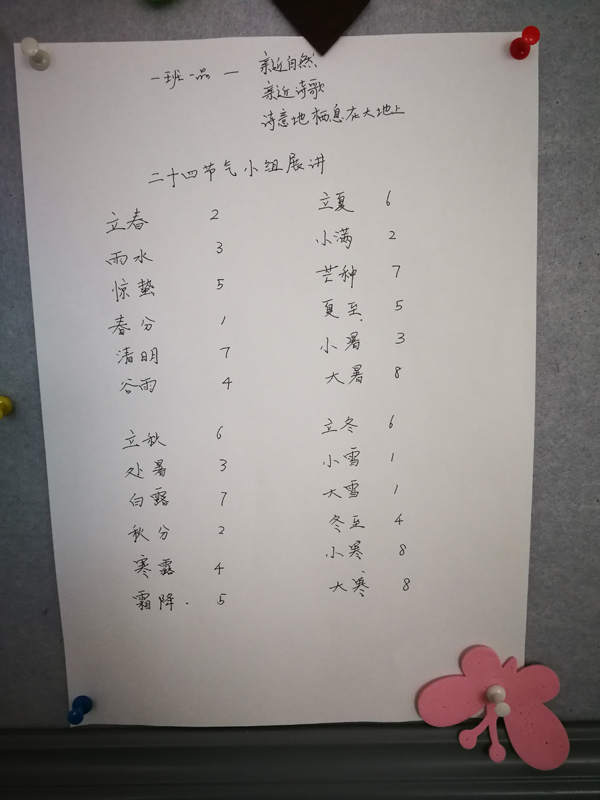 一班一品 — 亲近自然
亲近诗歌
诗意地栖息在大地上
二十四节气小组展讲
立春 2
雨水 3
惊蛰 5
春分 1
清明 7
谷雨 4
立夏 6
小满 2
芒种 7
夏至 5
小暑 3
大暑 8
立秋 6
处暑 3
白露 7
秋分 2
寒露 4
霜降. 5
立冬 6
小雪 1
大雪 1
冬至 4
小寒 8
大寒 8